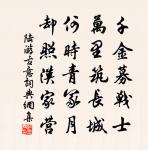 千金募戰士
萬里筑長城
何時青冢月
却照漢家營
陸游古意詞典網集